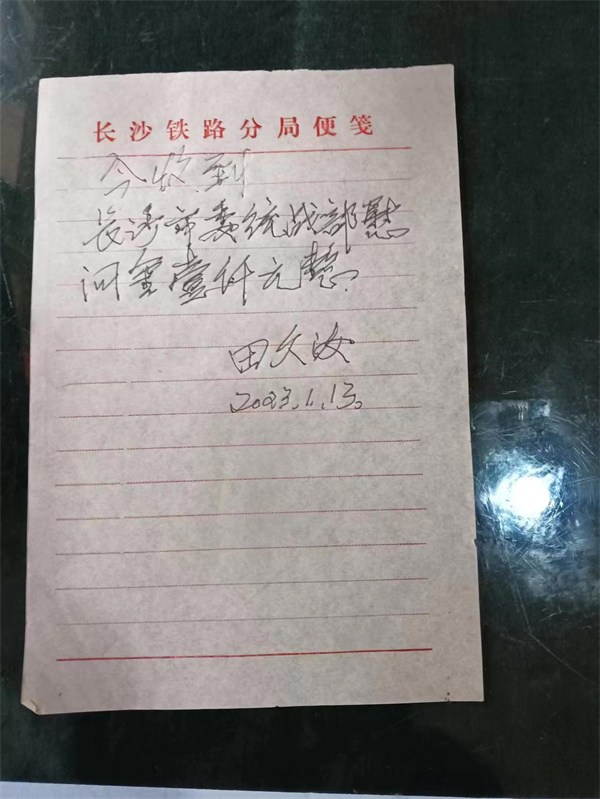 长沙铁路分局便笺
今收到
长沙市委统战部慰
问金壹仟元整.
田文汝
2023.1.13.